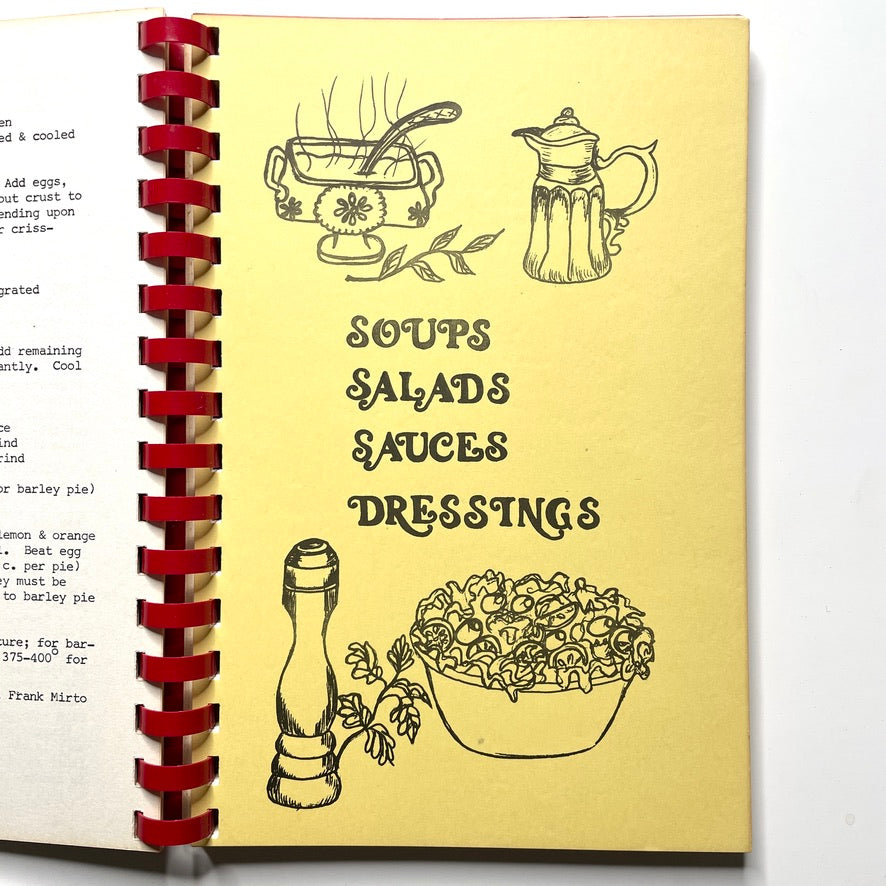 en
ed & cooled
Add eggs,
out crust to
ending upon
r criss-
grated
dd remaining
antly. Cool
ce
ind
rind
or barley pie)
lemon & orange
l. Beat egg
c. per pie)
ey must be
to barley pie
ture; for bar-
375-400° for
Frank Mirto
SOUPS
SALADS
SAUCES
DRESSINGS